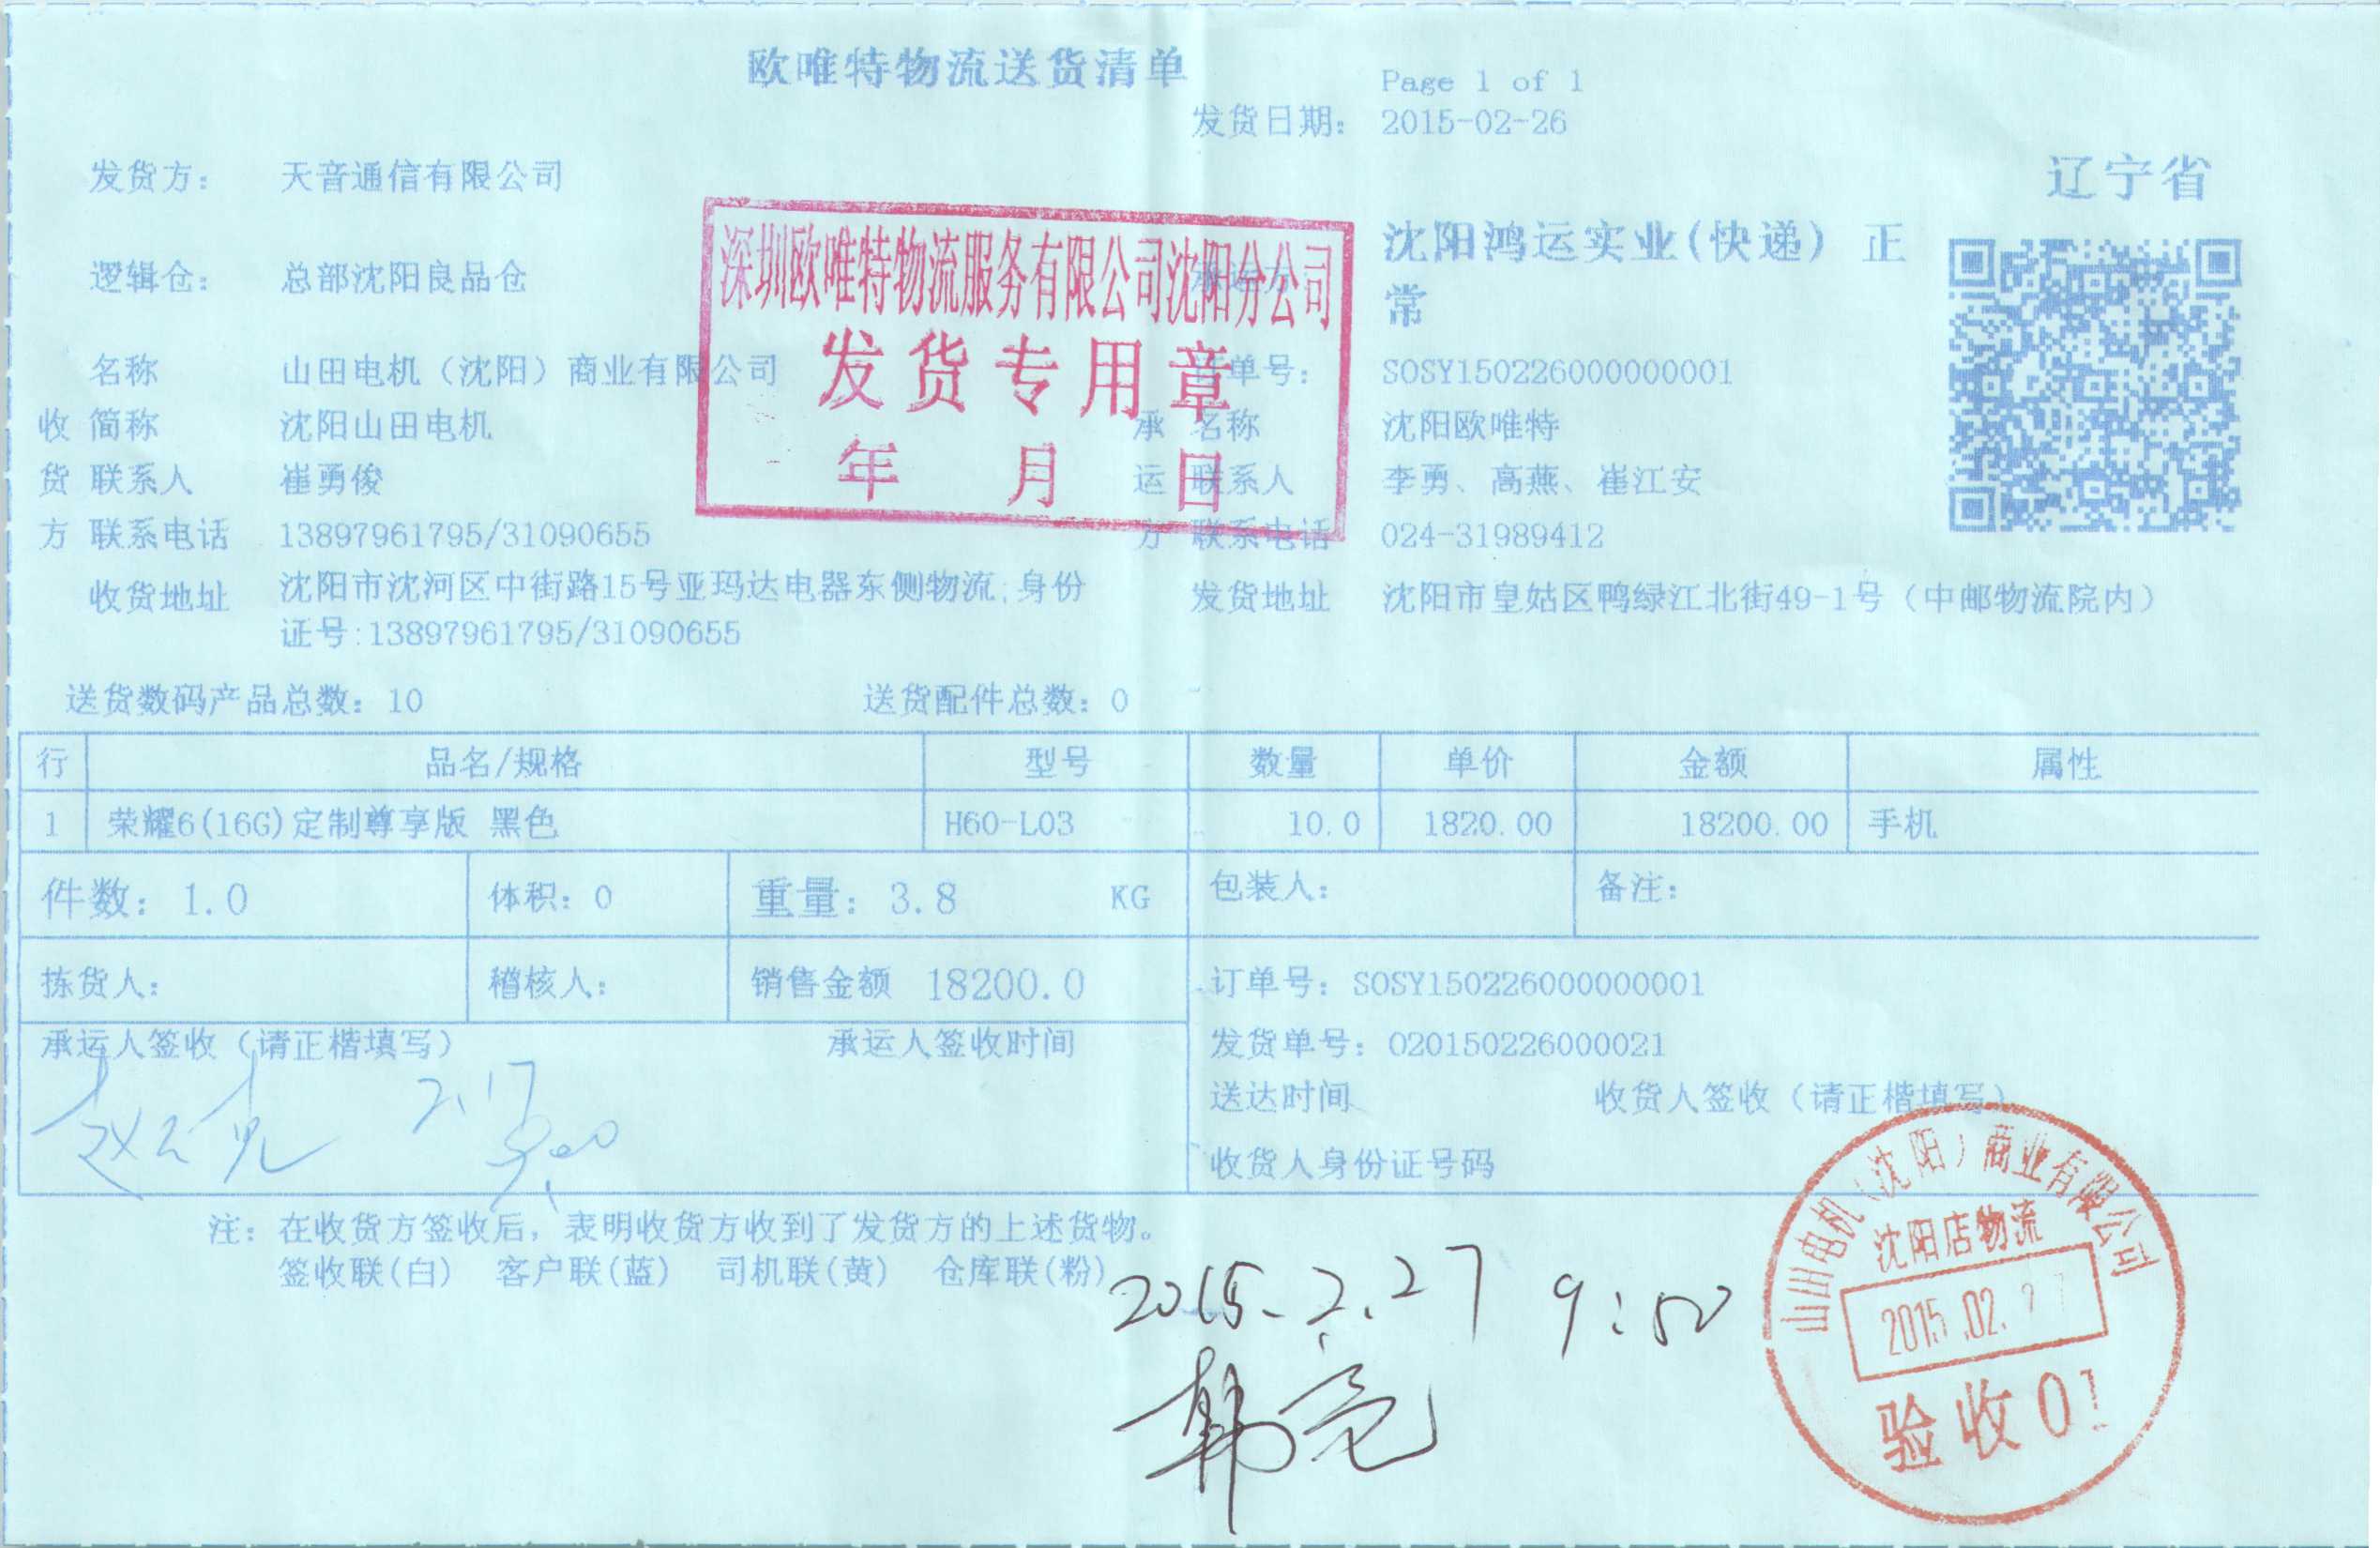 欧唯特物流送货清单
Page 1 of 1
发货日期: 2015-02-26
发货方: 天音通信有限公司
辽宁省
逻辑仓: 总部沈阳良品仓
承运方: 沈阳鸿运实业(快递) 正
常
深圳欧唯特物流服务有限公司沈阳分公司
发货专用章
年 月 日
名称 山田电机（沈阳）商业有限公司
单号: SOSY150226000000001
收 简称 沈阳山田电机
承 名称 沈阳欧唯特
货 联系人 崔勇俊
运 联系人 李勇、高燕、崔江安
方 联系电话 13897961795/31090655
方 联系电话 024-31989412
收货地址 沈阳市沈河区中街路15号亚玛达电器东侧物流;身份
证号:13897961795/31090655
发货地址 沈阳市皇姑区鸭绿江北街49-1号（中邮物流院内）
送货数码产品总数: 10 送货配件总数: 0
行 品名/规格 型号 数量 单价 金额 属性
1 荣耀6(16G)定制尊享版 黑色 H60-L03 10.0 1820.00 18200.00 手机
件数: 1.0 体积: 0 重量: 3.8 KG 包装人: 备注:
拣货人: 稽核人: 销售金额 18200.0 订单号: SOSY150226000000001
承运人签收（请正楷填写） 承运人签收时间 发货单号: 020150226000021
送达时间 收货人签收（请正楷填写）
收货人身份证号码
注: 在收货方签收后, 表明收货方收到了发货方的上述货物。
签收联(白) 客户联(蓝) 司机联(黄) 仓库联(粉)
2015.2.27 9:50
韩亮
山田电机（沈阳）商业有限公司
沈阳店物流
2015.02.27
验收01